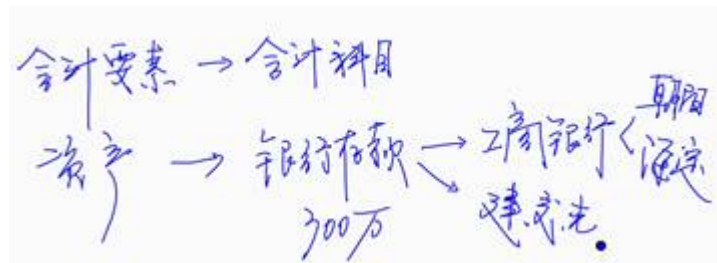 会计要素 → 会计科目
资产 → 银行存款 → 工商银行 < 朝阳
300万